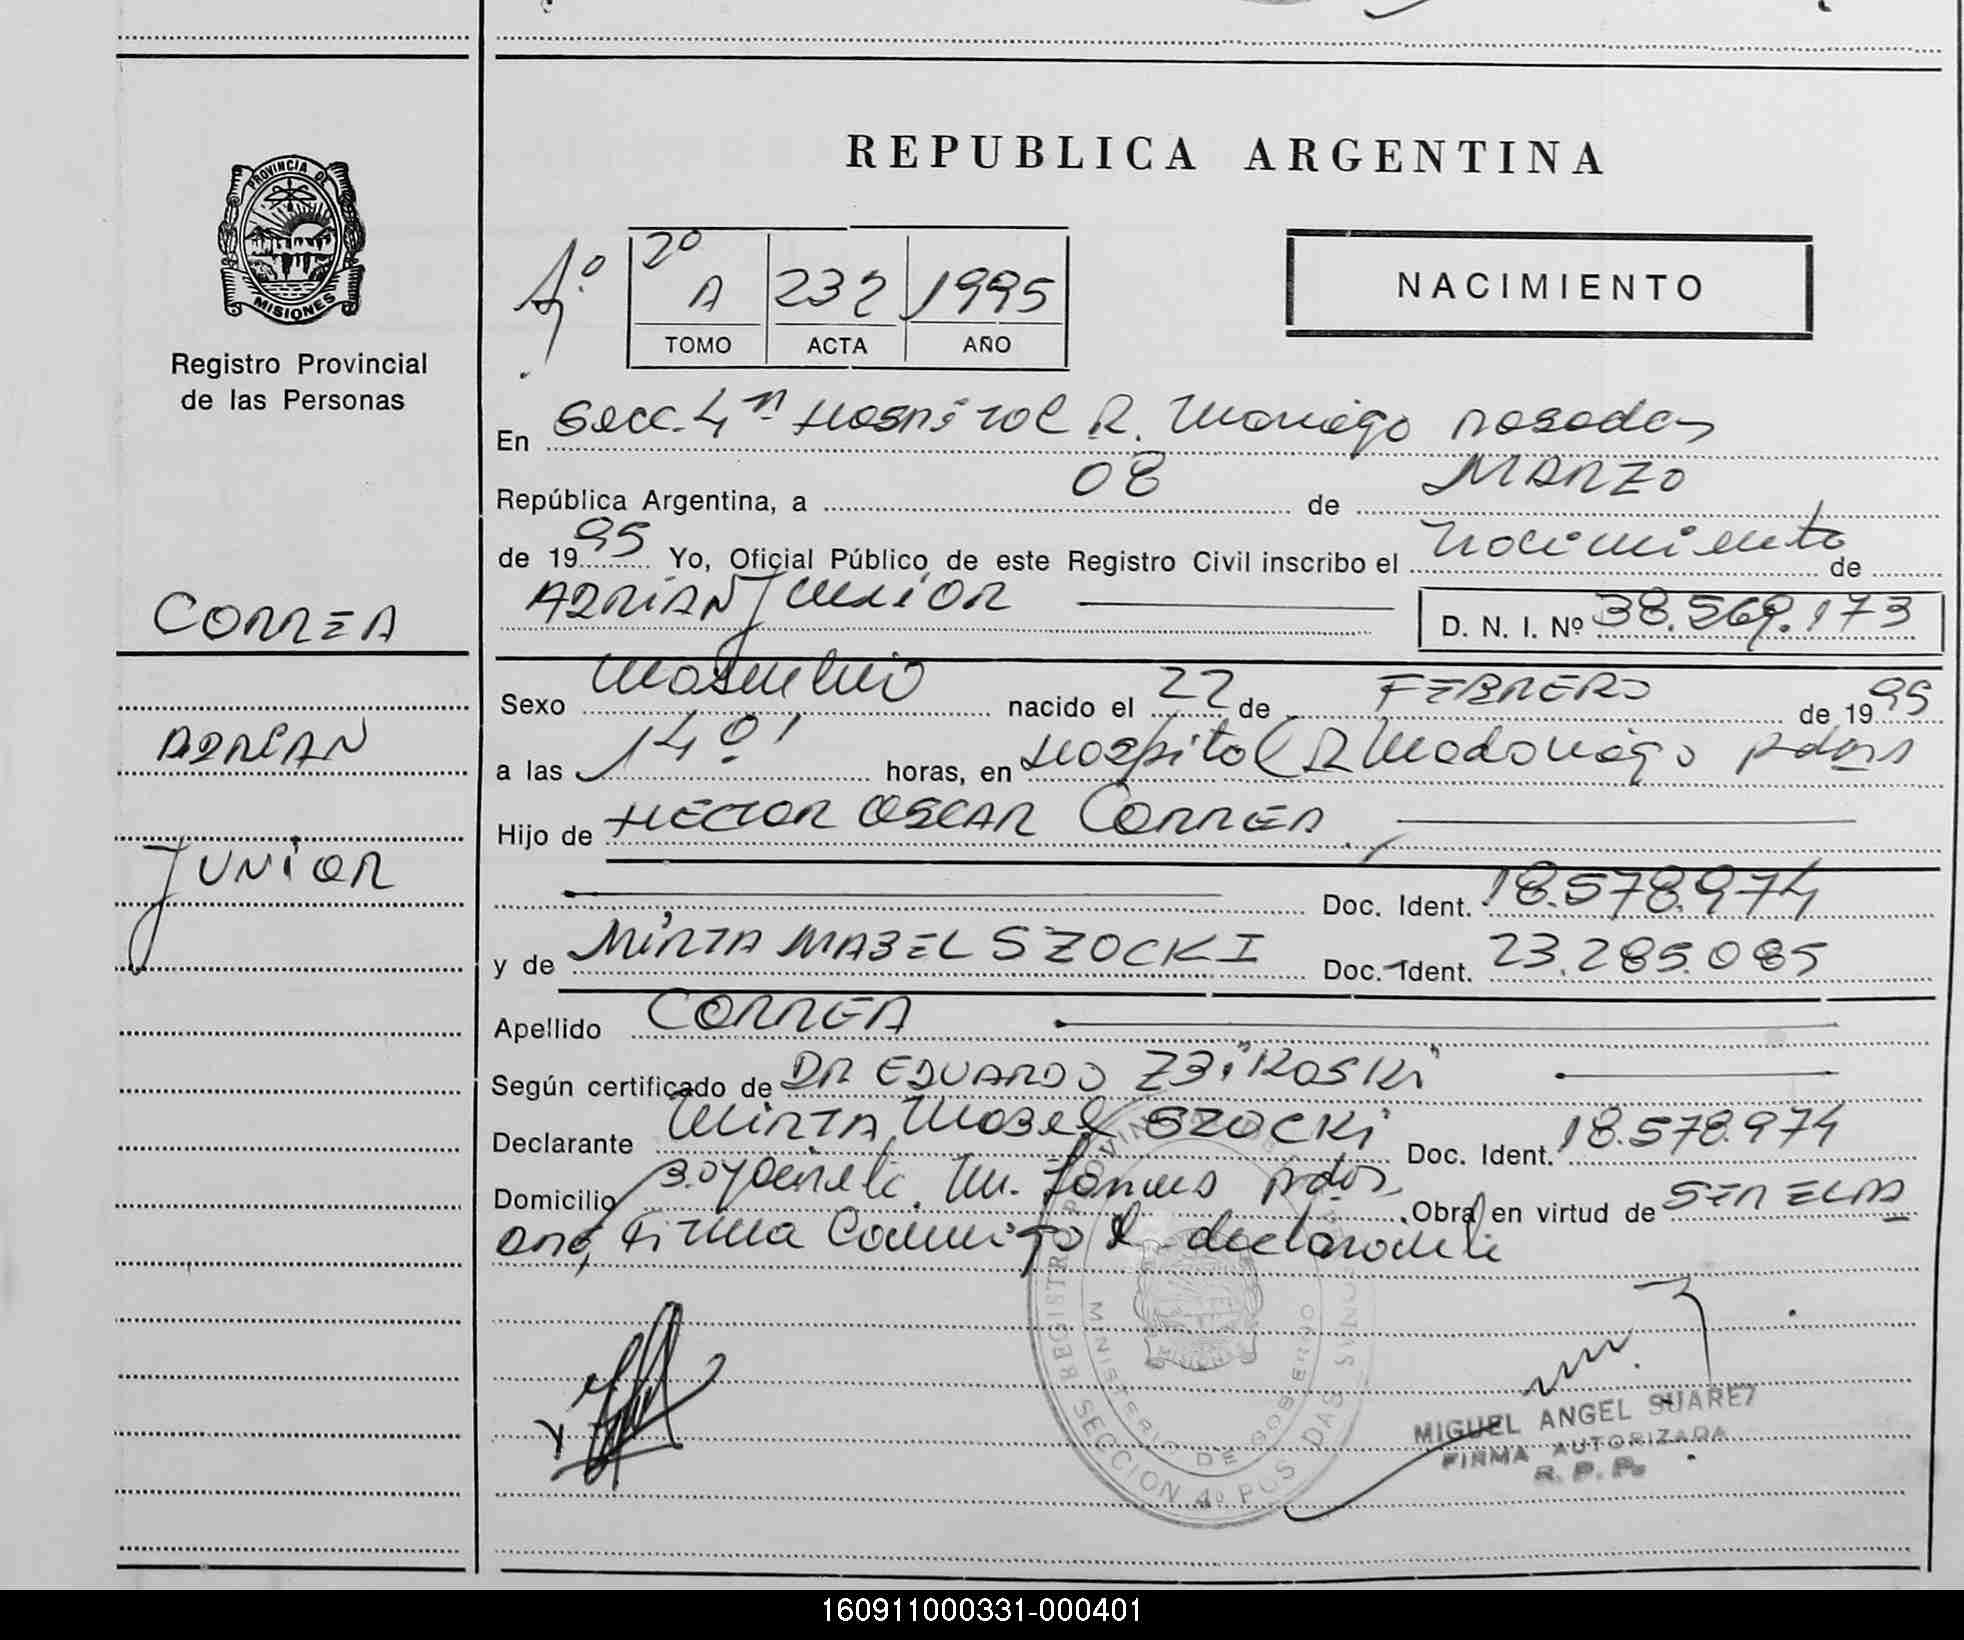 REPUBLICA ARGENTINA
PROVINCIA DE
MISIONES
Registro Provincial
de las Personas
2º
A 232 1995
TOMO ACTA AÑO
NACIMIENTO
En Secc. 4ª Hospital R. Posadas
República Argentina, a 08 de MARZO
de 1995 Yo, Oficial Público de este Registro Civil inscribo el Nacimiento de
ADRIAN JUNIOR D. N. I. Nº 38.569.173
CORREA
ADRIAN
JUNIOR
Sexo Masculino nacido el 22 de FEBRERO de 1995
a las 14º' horas, en Hospital R Madariaga Pdas
Hijo de HECTOR OSCAR CORREA
Doc. Ident. 18.578.974
y de MIRTA MABEL SZOCKI Doc. Ident. 23.285.085
Apellido CORREA
Según certificado de DR EDUARDO ZBIKOSKI
Declarante MIRTA Mabel SZOCKi Doc. Ident. 18.578.974
Domicilio Pdas Obra en virtud de SER ELLA
Firma Conmigo l declarante
REGISTRO PROVINCIAL
MINISTERIO DE GOBIERNO
SECCION 4º POSADAS MISIONES
MIGUEL ANGEL SUAREZ
FIRMA AUTORIZADA
R. P. P.
160911000331-000401